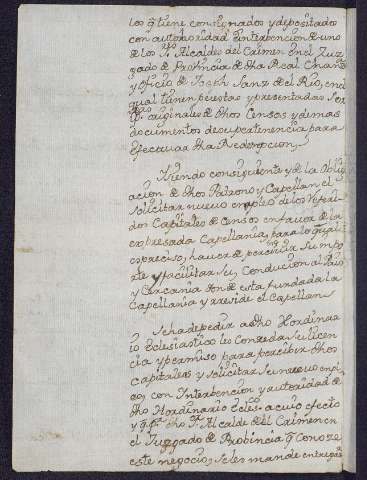 los q tiene consignados y depositados
con autoridad e interbencion de uno
de los S.res Alcaldes del Crimen en el Juz
gado de Provincia de dha Real Chanz.
y oficio de Joseph Sanz del Rio, en el
qual tienen puestas y presentadas Scr
ip.as originales de dhos Censos y demas
documentos de su pertenencia para
efectuar dha Redempcion
Y siendo consiguiente y de la obliga
cion de dhos Patrono y Capellan el
solicitar nuevo empleo de los referi
dos Capitales de Censos en favor de la
expresada Capellania, para lo qual
es preciso, haver de percivir su impor
te y facilitar su, Conducion al Pais
y Cercania donde esta fundada la
Capellania y reside el Capellan
Se ha de pedir a dho Hordinar
io Eclesiastico les Conzeda su licen
cia y permiso para percibir dhos
capitales y solicitar su nuevo enpl
eo, con Interbencion y autoridad de
dho Hordinario Ecles.co a cuio efecto
y q.e p.r dho S.r Alcalde del Crimen en
el Juzgado de Probincia q Conoze
este negocio, se les mande entregar